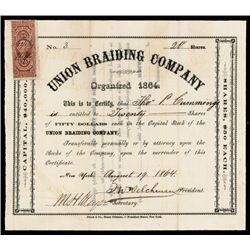 No. 3
20 Shares.
UNION BRAIDING COMPANY
Organized 1864.
CAPITAL, $40,000.
SHARES, $50 EACH.
This is to Certify, that Thos P. Cummings
is entitled to Twenty Shares
of FIFTY DOLLARS each in the Capital Stock of the
UNION BRAIDING COMPANY.
Transferable personally or by attorney upon
the Books of the Company, upon the surrender of this
Certificate.
New York August 19 1864.
President.
Secretary.